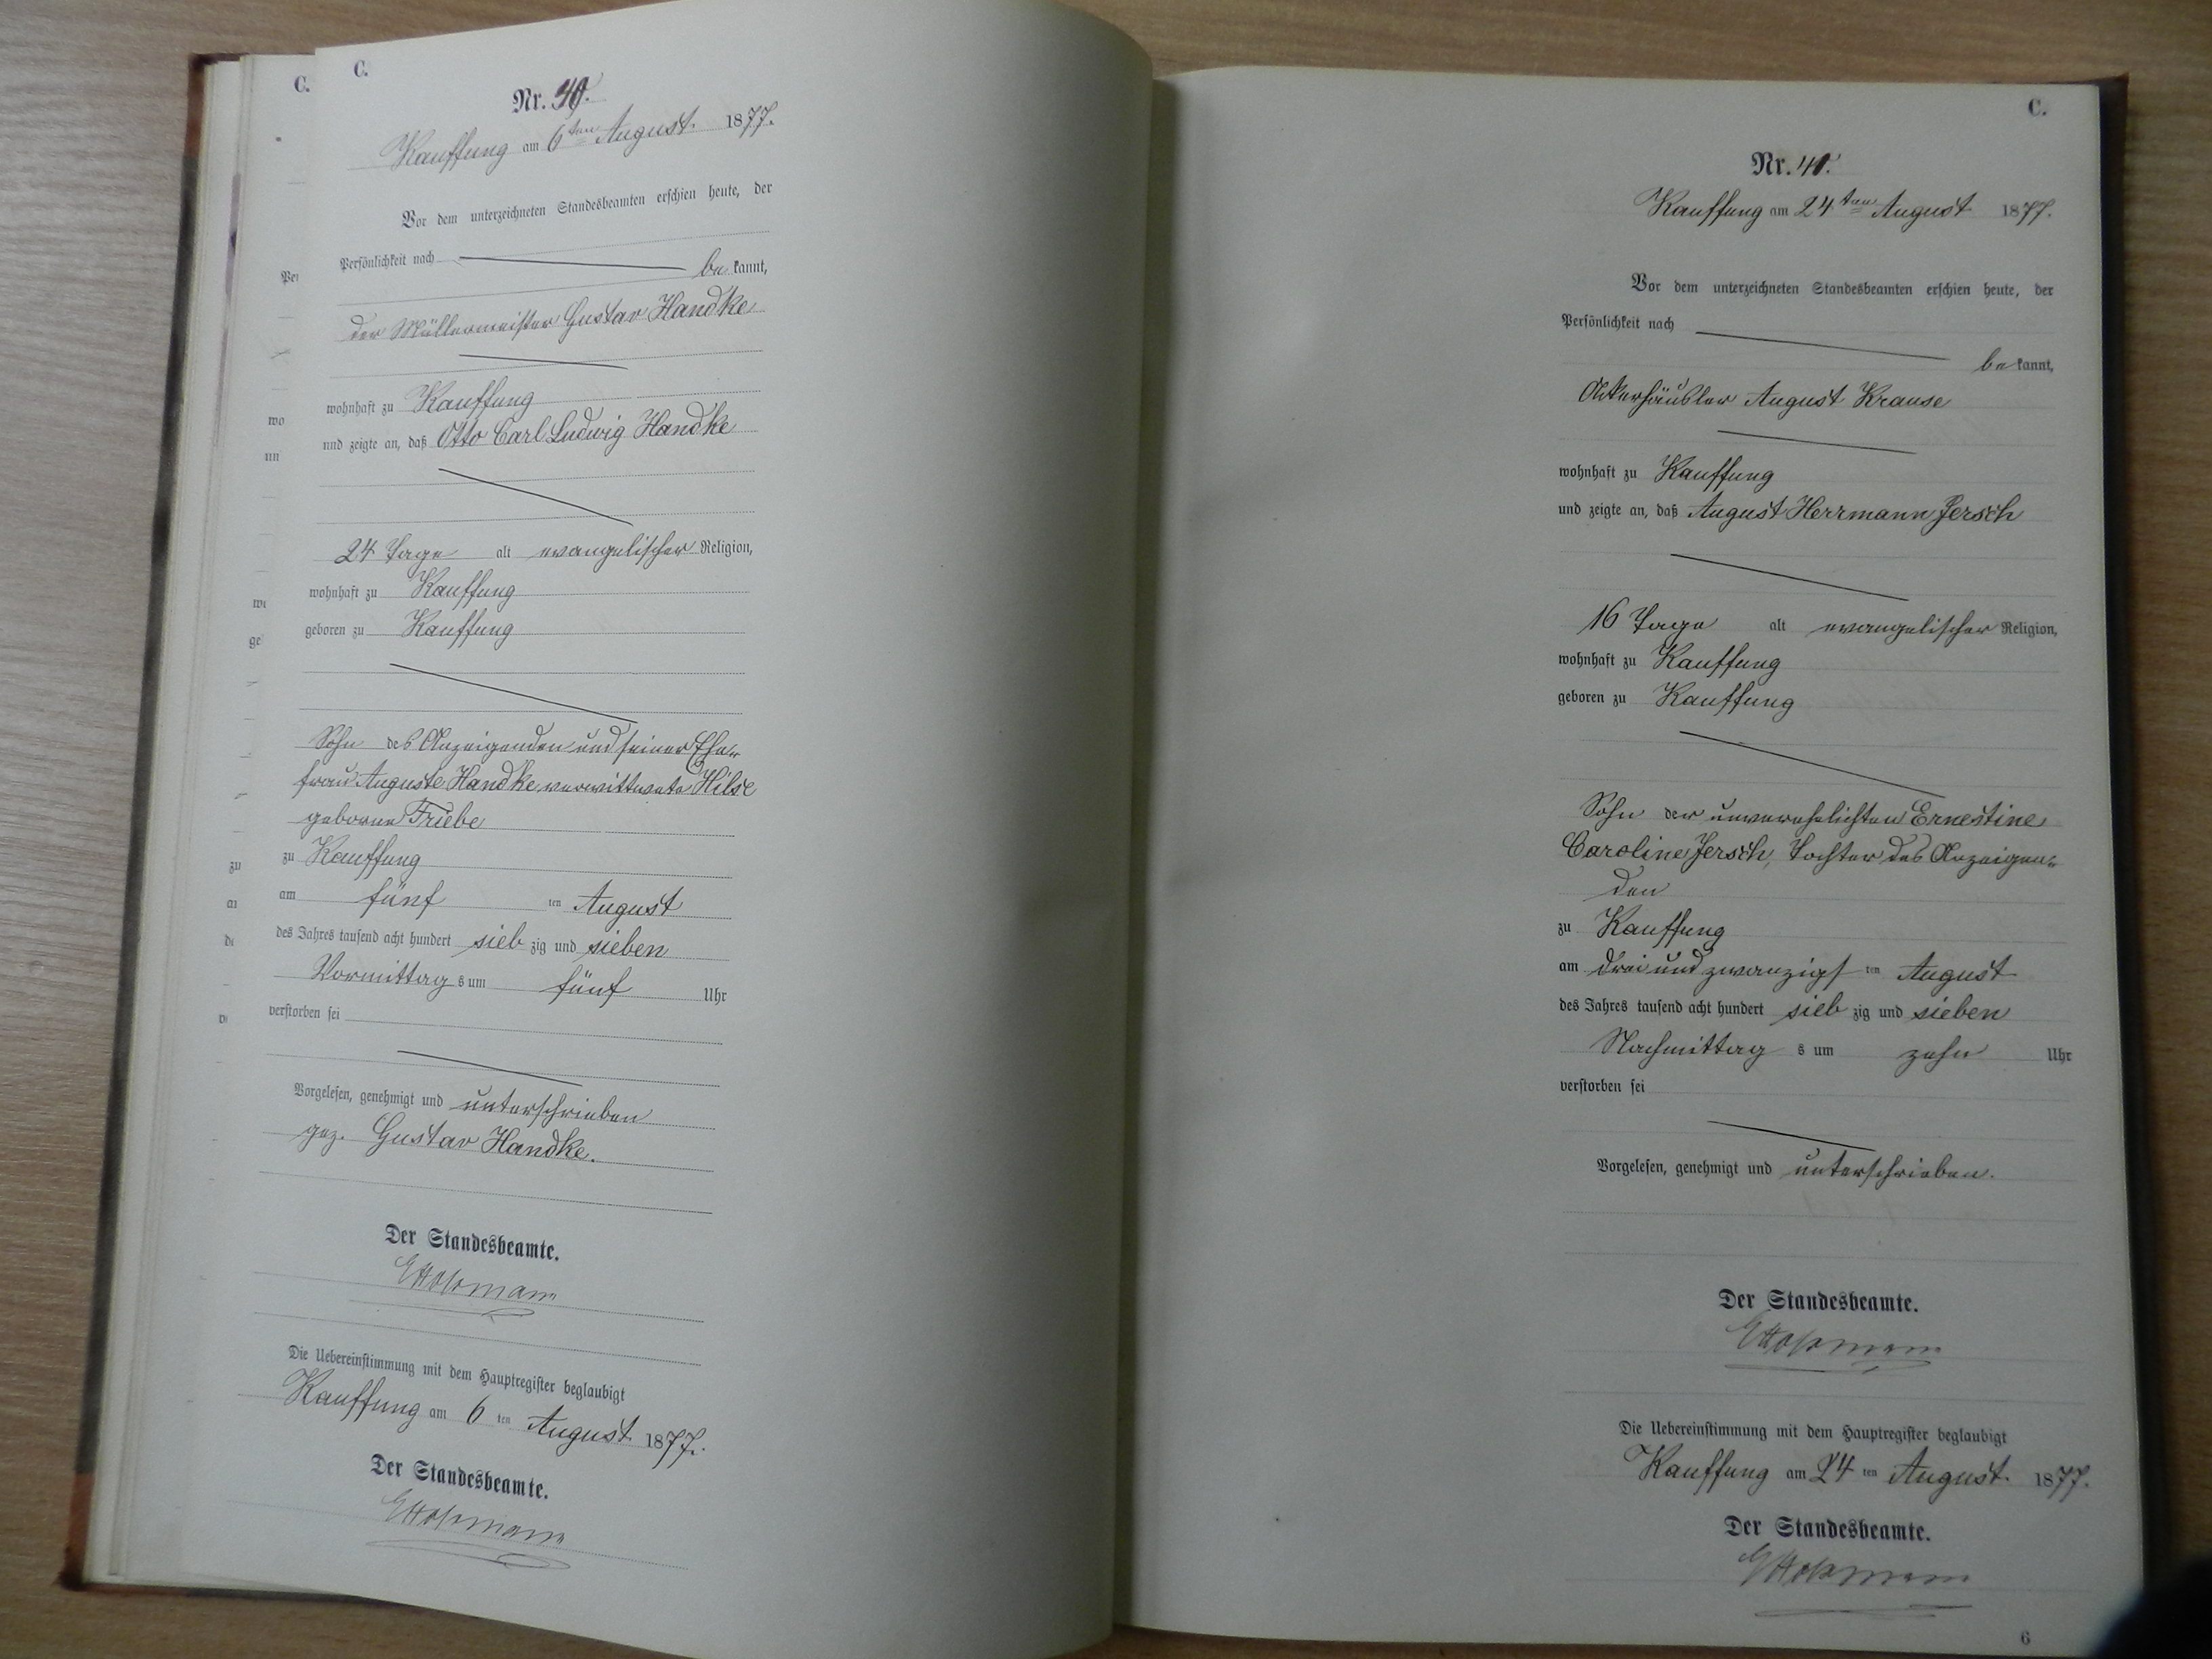 C.
C.
Nr. 40.
Kauffung am 6ten August 1877.
Vor dem unterzeichneten Standesbeamten erschien heute, der
Persönlichkeit nach be kannt,
der Müllermeister Gustav Handke
wohnhaft zu Kauffung
und zeigte an, daß Otto Carl Ludwig Handke
24 Tage alt evangelischer Religion,
wohnhaft zu Kauffung
geboren zu Kauffung
Sohn des Anzeigenden und seiner Ehe-
frau Auguste Handke verwittwete Hilse
geborne Friebe
zu Kauffung
am fünf ten August
des Jahres tausend acht hundert sieb zig und sieben
Vormittag s um fünf Uhr
verstorben sei
Vorgelesen, genehmigt und unterschrieben
gez. Gustav Handke.
Der Standesbeamte.
Die Uebereinstimmung mit dem Hauptregister beglaubigt
Kauffung am 6 ten August 1877.
Der Standesbeamte.
C.
Nr. 41.
Kauffung am 24ten August 1877.
Vor dem unterzeichneten Standesbeamten erschien heute, der
Persönlichkeit nach
be kannt,
Ackerhäusler August Krause
wohnhaft zu Kauffung
und zeigte an, daß August Herrmann Jersch
16 Tage alt evangelischer Religion,
wohnhaft zu Kauffung
geboren zu Kauffung
Sohn der unverehelichten Ernestine
Caroline Jersch, Tochter des Anzeigen-
den
zu Kauffung
am drei und zwanzigs ten August
des Jahres tausend acht hundert sieb zig und sieben
Nachmittag s um zehn Uhr
verstorben sei
Vorgelesen, genehmigt und unterschrieben.
Der Standesbeamte.
Die Uebereinstimmung mit dem Hauptregister beglaubigt
Kauffung am 24 ten August 1877.
Der Standesbeamte.
6